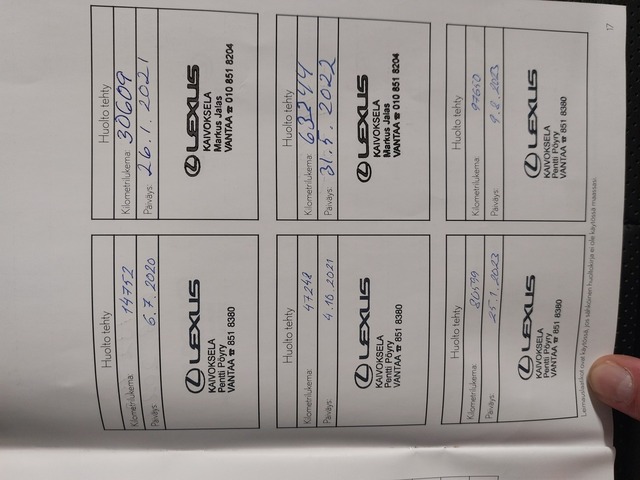 Huolto tehty
Kilometrilukema: 14752
Päiväys: 6.7.2020
LEXUS
KAIVOKSELA
Pentti Pöyry
VANTAA ☎ 851 8380
Huolto tehty
Kilometrilukema: 30609
Päiväys: 26.1.2021
LEXUS
KAIVOKSELA
Markus Jalas
VANTAA ☎ 010 851 8204
Huolto tehty
Kilometrilukema: 47248
Päiväys: 4.10.2021
LEXUS
KAIVOKSELA
Pentti Pöyry
VANTAA ☎ 851 8380
Huolto tehty
Kilometrilukema: 63244
Päiväys: 31.5.2022
LEXUS
KAIVOKSELA
Markus Jalas
VANTAA ☎ 010 851 8204
Huolto tehty
Kilometrilukema: 80599
Päiväys: 25.1.2023
LEXUS
KAIVOKSELA
Pentti Pöyry
VANTAA ☎ 851 8380
Huolto tehty
Kilometrilukema: 97650
Päiväys:
LEXUS
KAIVOKSELA
Pentti Pöyry
VANTAA ☎ 851 8380
Leimauslaatikot ovat käytössä, jos sähköinen huoltokirja ei ole käytössä maassasi.
17